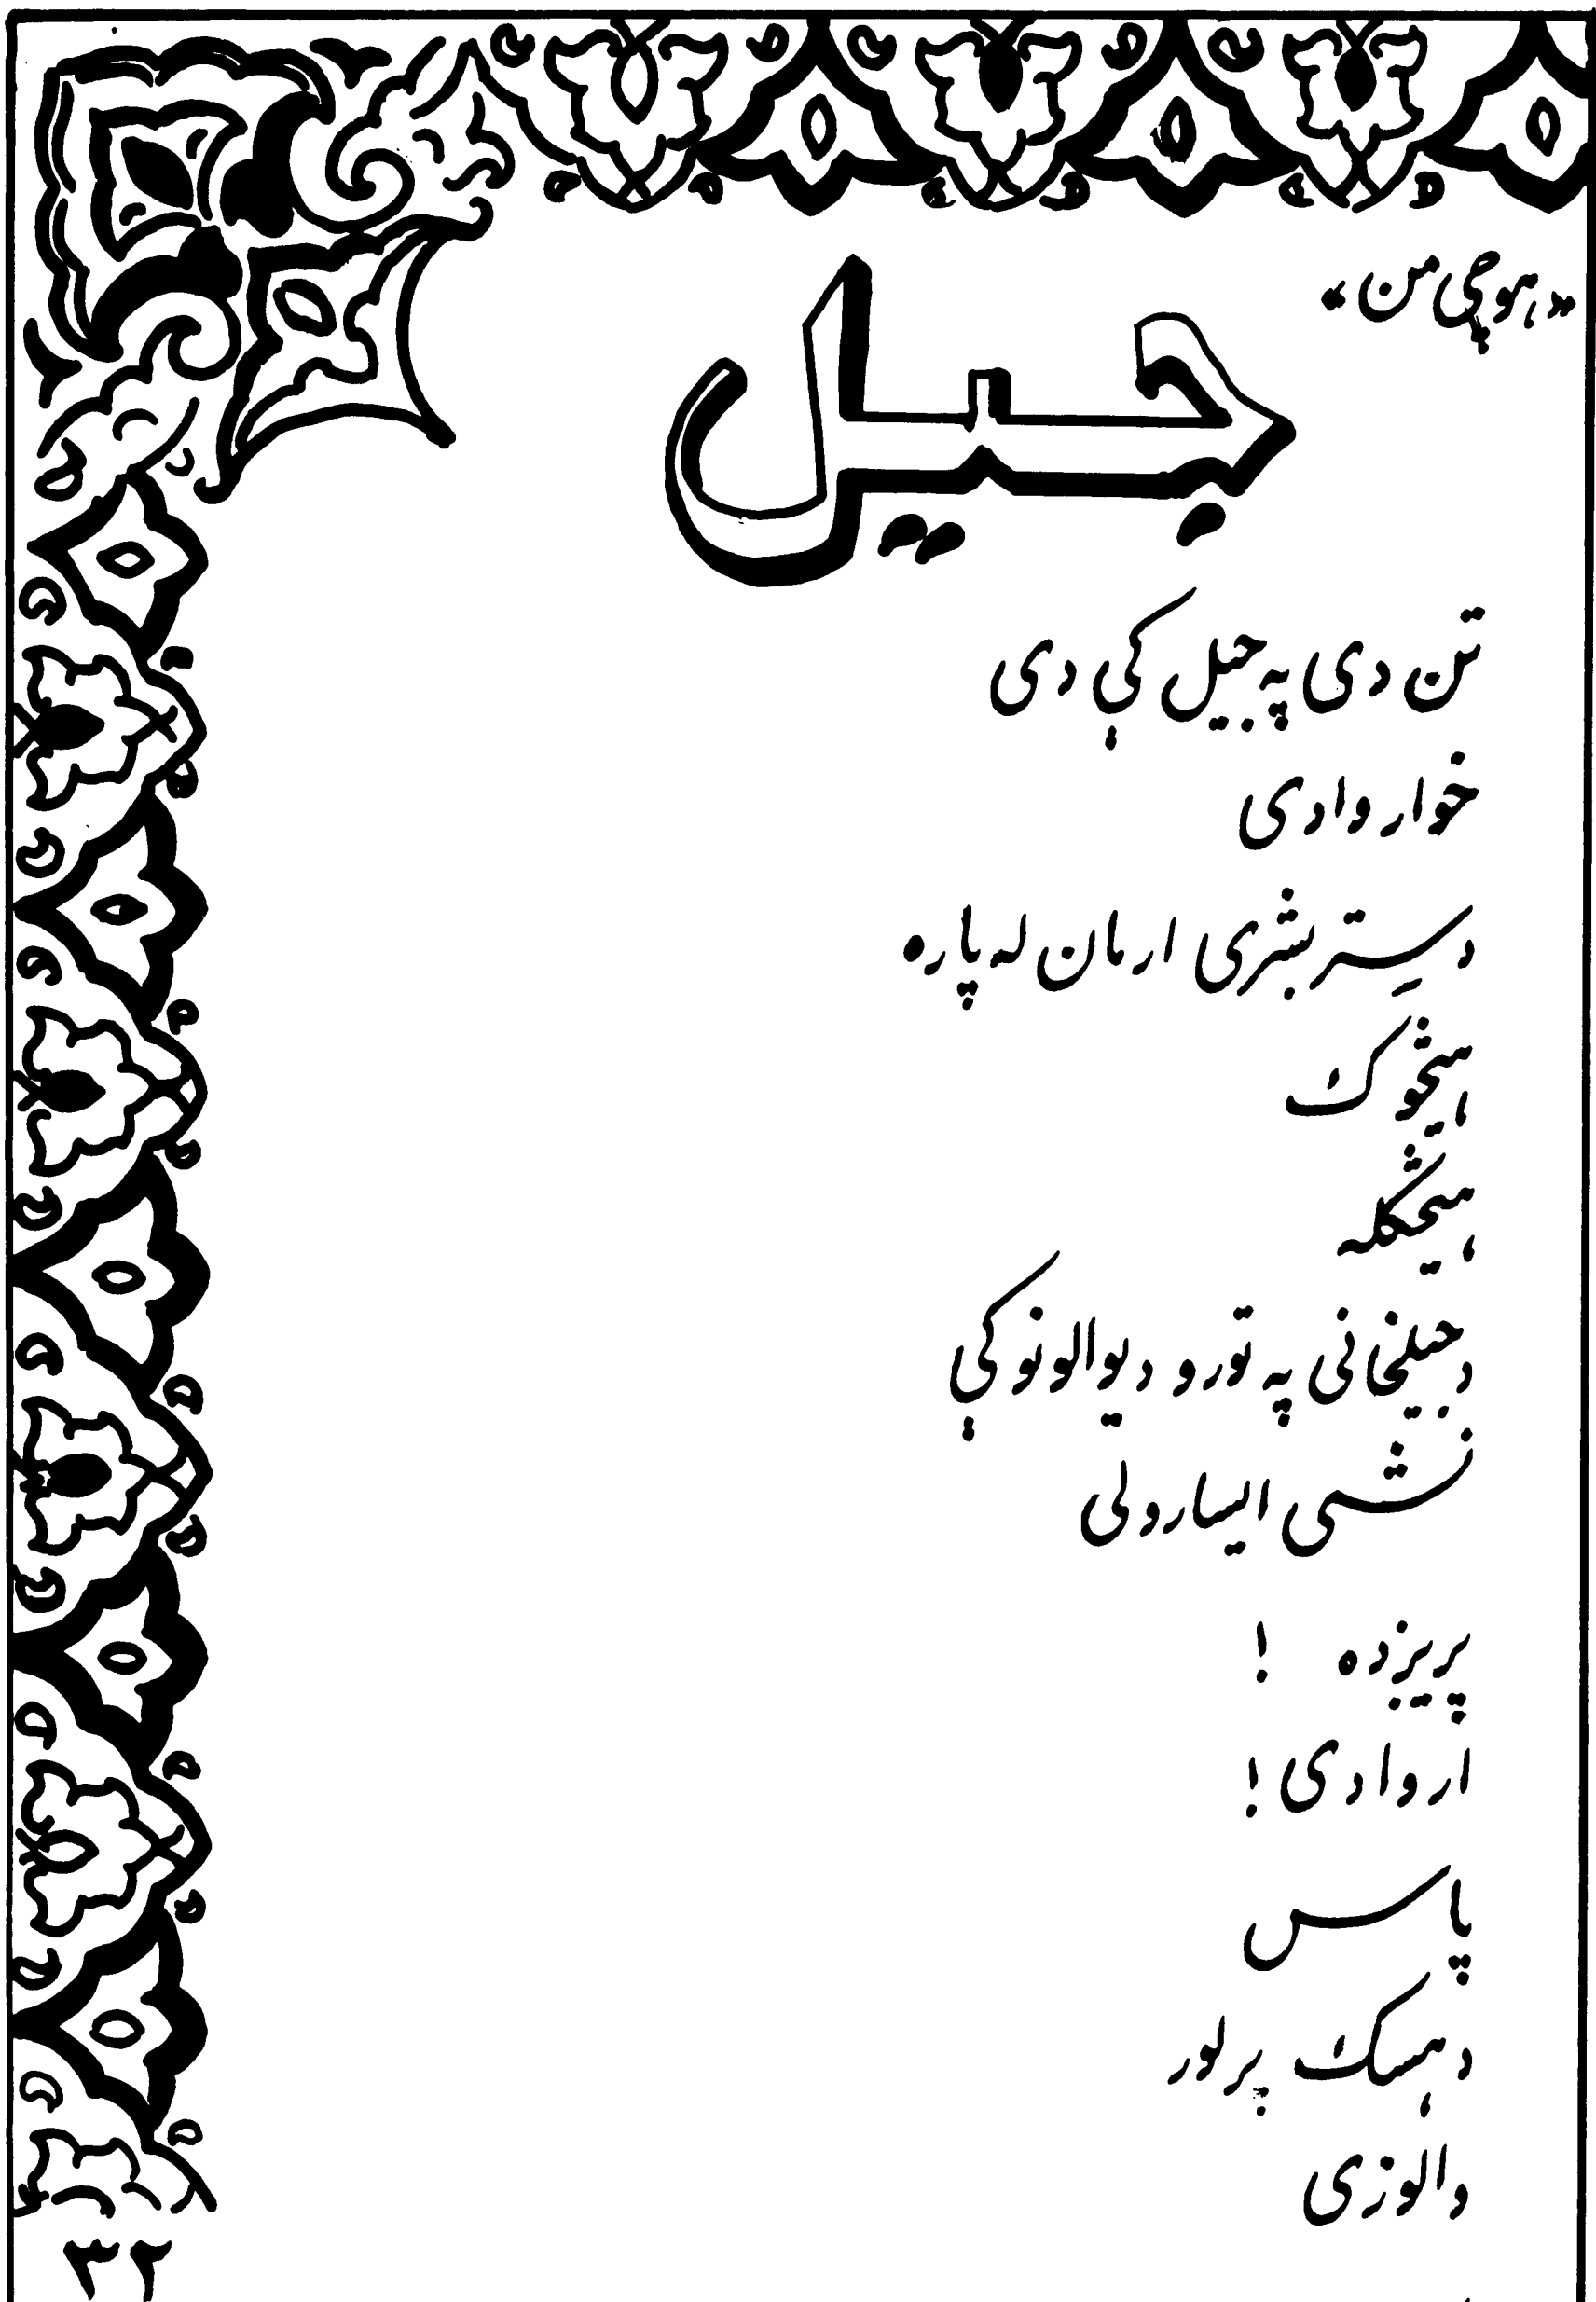 «هوچي من»
جیل
تن دی په جیل کې دی
خوار وادی
د ستر بشری ارمان له پاره
هیڅوک
هیڅکله
د جیلخانی په تورو دیوالونو کې
نشی ایسارولی
پریږده !
اروا دی !
پاس
د هسک پر لور
والوزی
۳۲